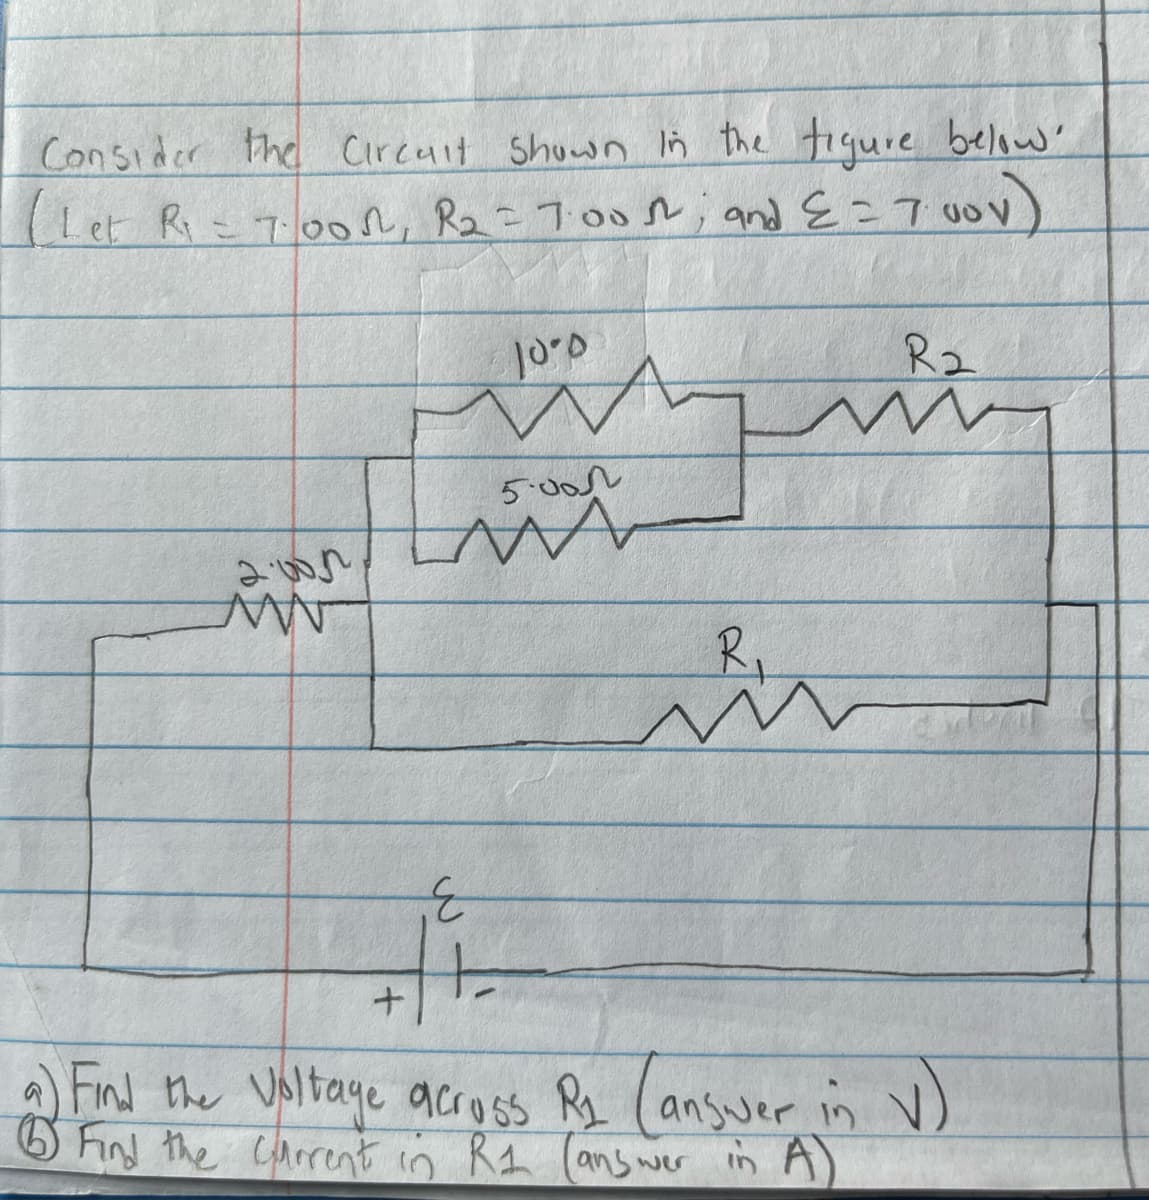 Consider the Circuit Shown in the figure below.
(Let R₁ = 7.00Ω, R₂ = 7.00Ω; and Ɛ = 7.00V)
10.0
R₂
5.00Ω
2.00Ω
R₁
Ɛ
+ -
a) Find the Voltage across R1 (answer in V)
ⓑ Find the Current in R1 (answer in A)